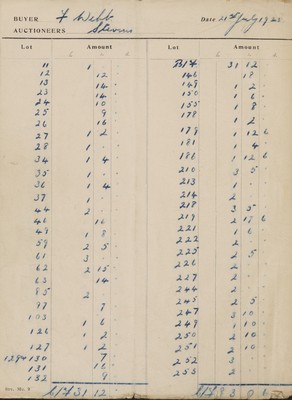 BUYER F Webb
Date 21st July 192
AUCTIONEERS Stevens
Lot Amount
11 1 . .
12 12 .
13 14 .
23 14 .
24 10 .
25 9 .
26 16 .
27 1 2 .
28 1 . .
34 1 4 .
35 1 . .
36 1 4 .
37 1 . .
44 2 . .
46 16 .
49 1 8 .
59 2 5 .
61 3 . .
62 2 15 .
63 14 .
85 2 . .
99 7 .
103 1 6 .
126 1 2 .
127 1 2 .
130 7 .
131 16 .
132 9 .
31 12 .
Lot Amount
31 12 .
146 18 .
149 1 2 .
150 1 6 .
155 1 8 .
178 1 2 .
179 1 12 6
181 1 4 .
186 1 12 6
210 3 5 .
213 1 . .
214 2 . .
218 3 5 .
219 2 18 6
221 1 6 .
222 2 . .
225 2 5 .
226 2 . .
227 2 . .
244 2 . .
245 2 5 .
247 3 10 .
249 1 10 .
250 2 10 .
251 2 10 .
252 3 . .
253 2 . .